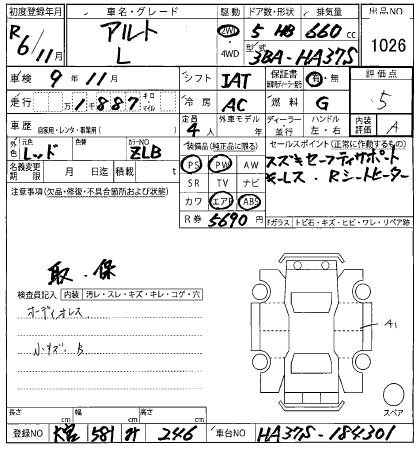 初度登録年月 車名・グレード 駆動 ドア数・形状 排気量 出品NO
R6/11月 アルト L 2WD ・ 4WD 5 HB 660 cc 1026
型式 3BA-HA37S
車検 9年11月 シフト IAT 保証書 有・無 評価点
走行 万 1887 キロ・マイル 冷房 AC 燃料 G 5
車歴 自家用・レンタ・事業用( ) 定員 4人 外車モデル 年 ディーラー・並行 ハンドル 左・右 内装評価 A
外色 元色 レッド 色替 カラーNO ZLB
装備品(純正品に限る) セールスポイント(正常に作動するもの)
名義変更期限 月 日 積載 t
PS PW AW
スズキセーフティサポート
SR TV ナビ
キーレス . Rシートヒーター
注意事項(欠品・修復・不具合箇所および状態)
カワ エアB ABS
R券 5690円
Fガラス トビ石・キズ・ヒビ・ワレ・リペア跡
取.保
検査員記入 内装 汚レ・スレ・キズ・キレ・コゲ・穴
オーディオレス
小キズ.B
A1
スペア
長さ cm 幅 cm 高さ cm
登録NO 大宮 581 246 車台NO HA37S-184301